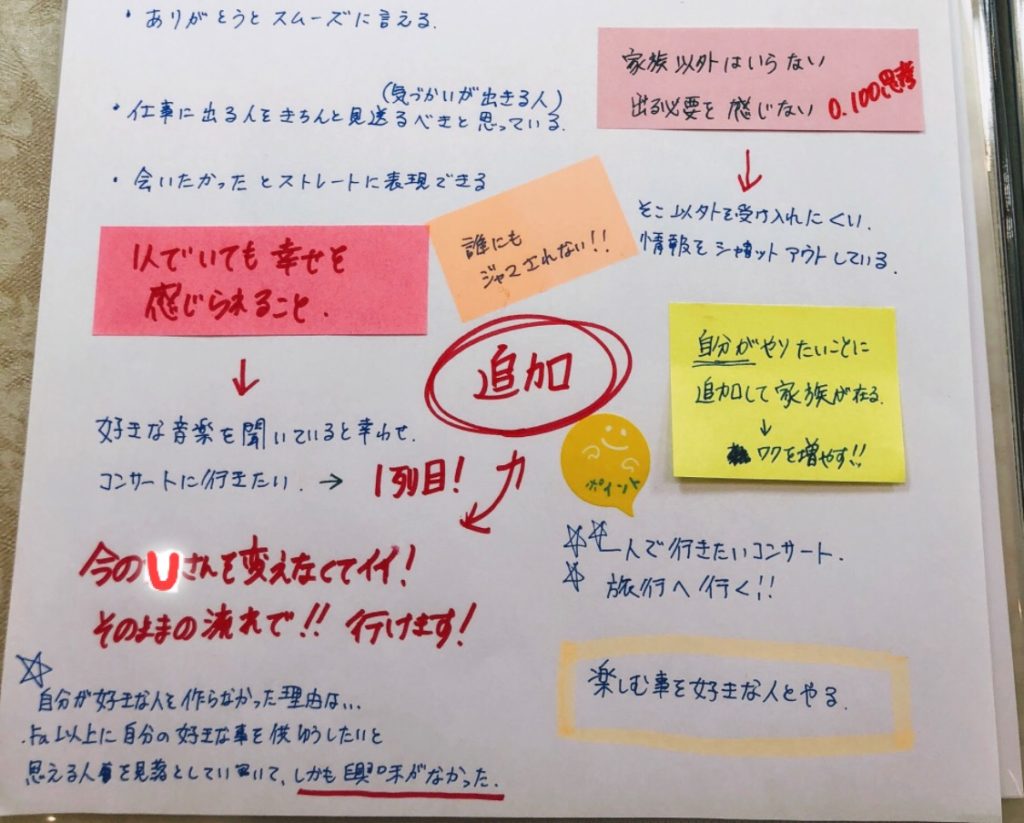 ・ありがとうとスムーズに言える.
家族以外はいらない
出る必要を感じない 0.100思考
(気づかいが出きる人)
・仕事に出る人をきちんと見送るべきと思っている.
・会いたかったとストレートに表現できる
そこ以外を受け入れにくい.
情報をシャットアウトしている.
誰にも
ジャマされない!!
1人でいても幸せを
感じられること.
追加
力
自分がやりたいことに
追加して家族が在る.
↓
ワクを増やす!!
ポイント
好きな音楽を聞いていると幸わせ.
コンサートに行きたい. → 1列目!
今のUさんを変えなくてイイ!
そのままの流れで!! 行けます!
☆☆一人で行きたいコンサート.
☆ 旅行へ行く!!
楽しむ事を好きな人とやる.
☆
自分が好きな人を作らなかった理由は...
以上に自分の好きな事を供ゆうしたいと
思える人を見落としていて、しかも興味がなかった.